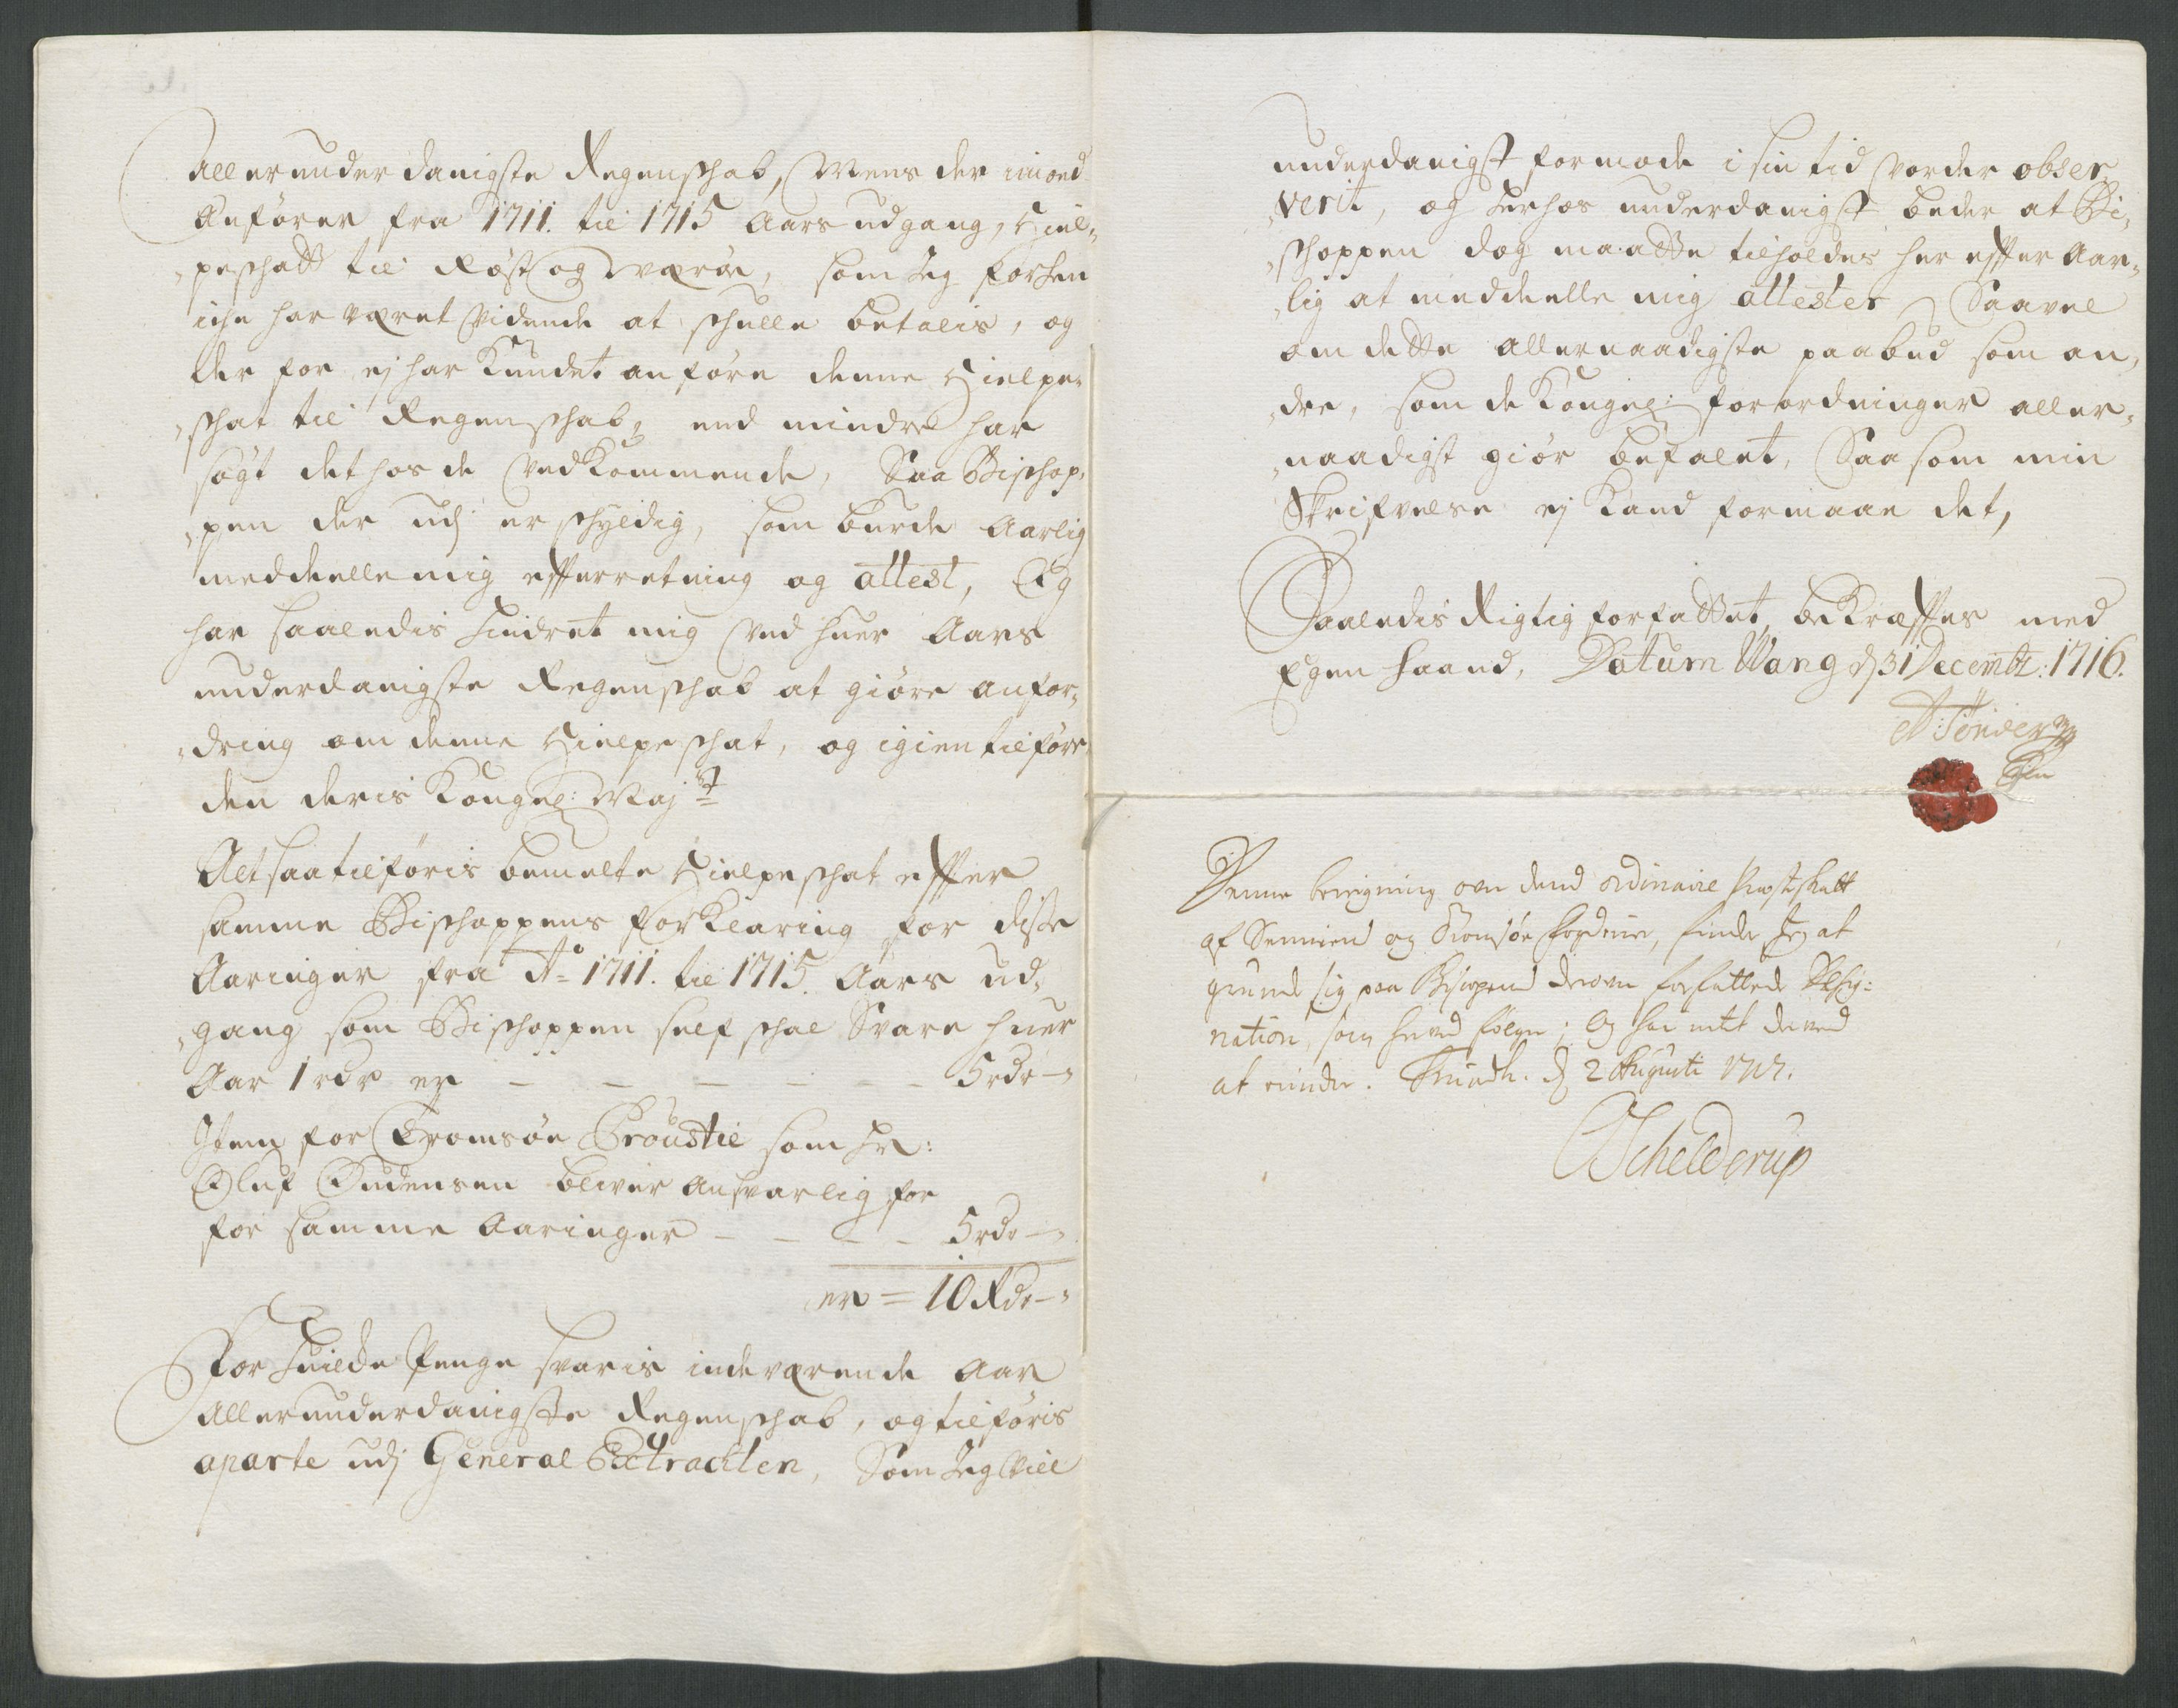 Allerunderdanigste Regenschab, Mens der imod
Anfører fra 1711. til 1715 Aars udgang, Hiel-
peschatt til Røst og Værøe, som Jeg forhen
iche har været Vidende at schulle betalis, og
der for ej har Kundet anføre denne Hielpe-
schat til Regenschab, end mindre har
søgt det hos de Vedkommende, Saa Bischop-
pen der udj er schyldig, som burde Aarlig
meddeelle mig effterretning og attest, Og
har saaledis hindret mig Ved huer Aars
underdanigste Regenschab at giøre anfor-
dring om denne Hielpeschat, og igien tilføre
den deris Kongel: Majt
Alt saa tilføris bemelte Hielpeschat effter
samme Bischoppens forklaring for disse
Aaringer fra Ao 1711. til 1715. Aars ud-
gang som Bischoppen self schal Svare huer
Aar 1 rdr er - - - - - - 5 rdr -
Item for Tromsøe Proustie som Hr:
Oluf Oudensen bliver Ansvarlig for
for samme Aaringer - - - - 5 rdr -
er = 10 Rdr -
For huilde Penge svaris indeværende Aar
Allerunderdanigste Regenschab, og tilføris
aparte udj General Extracten, Som Jeg Vill
underdanigst formode i sin tid vorder obser-
verit, og derhos underdanigst beder at Bi-
schoppen dog maatte tilholdes her effter Aar-
lig at meddeelle mig attester Saavel
om dette allernaadigste paabud som an-
dre, som de Kongel: forordninger aller-
naadigst giør befalet, Saasom min
Skrifvelse ej kand formaae det,
Saaledis Rigtig forfattet, bekræfftes med
Egen haand, Datum Wang d 31 Decembr: 1716.
A: Tønder
Denne beregning over dend ordinaire Prousteskatt
af Sennien og Tromsøe Fogderie, finder Jeg at
grunde sig paa Bispens derover forfattede Desig-
nation, som herved følger; Og har intet derved
at erindre. Trundh. d 2 Augusti 1717.
Schelderup